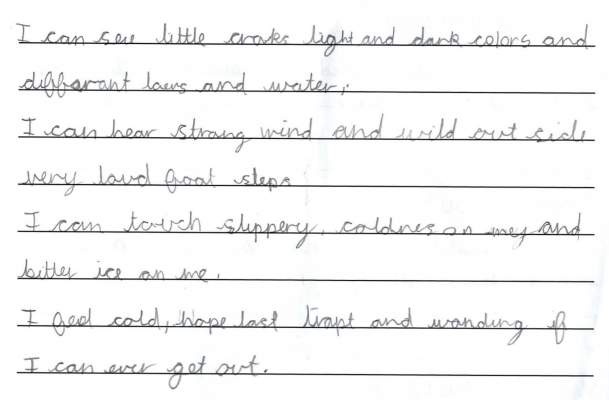 I can see little craks light and dark colors and
differant laers and water,.
I can hear strang wind and wild out side
very loud foot steps
I can touch slippery, coldnes on mey and
bitter ice on me.
I feel cold, hope last trapt and wanding if
I can ever get out.